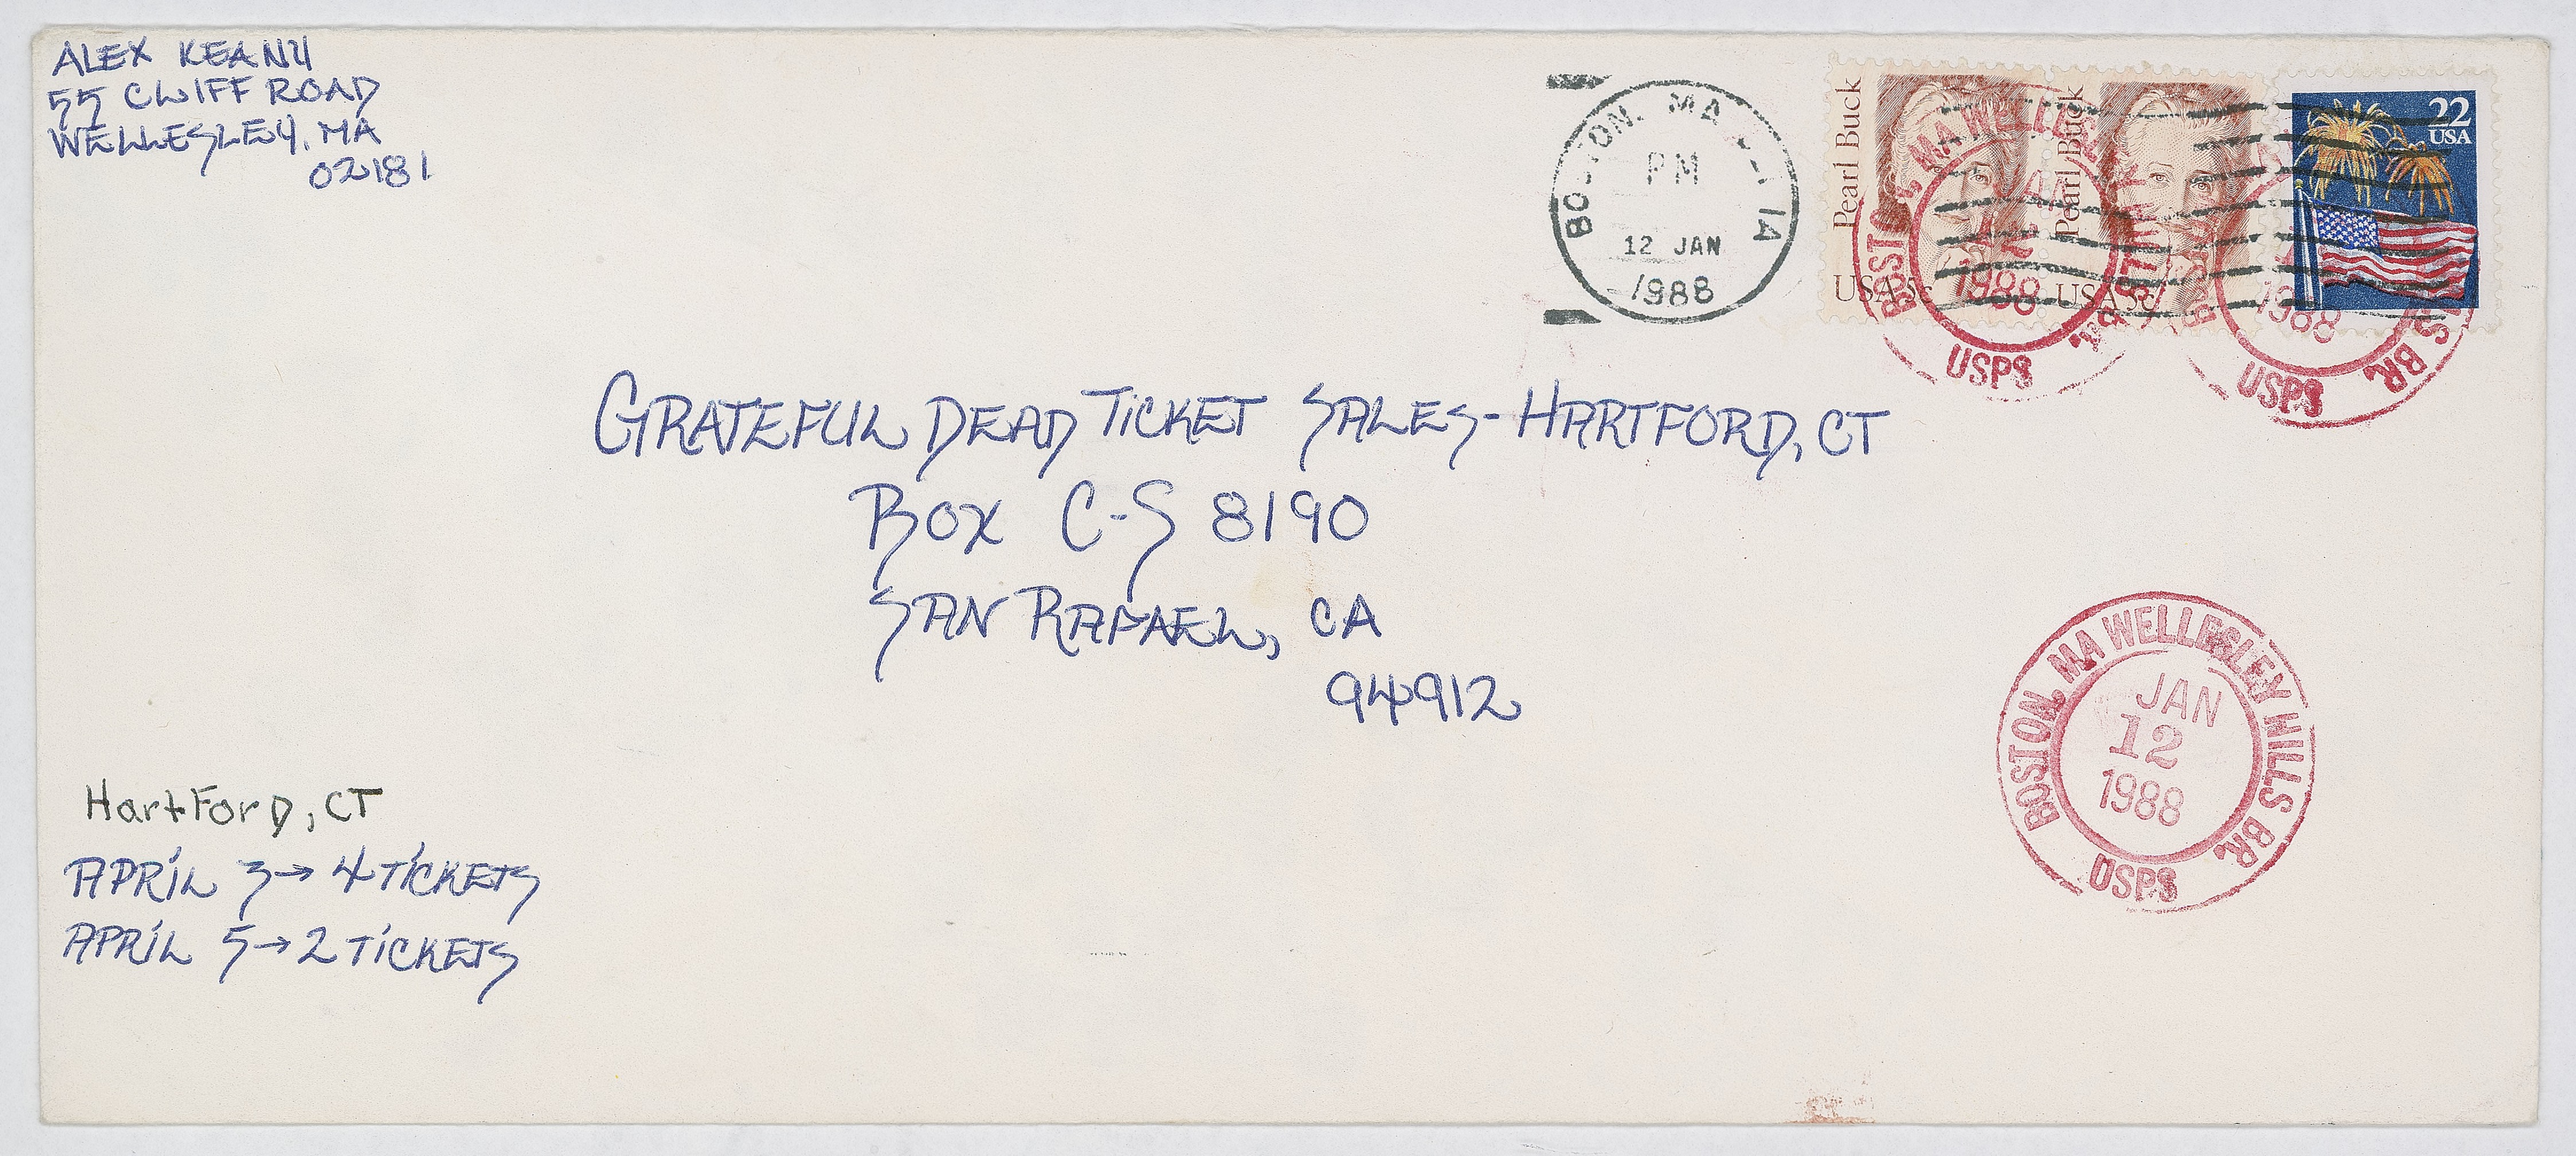 ALEX KEANY
55 CLIFF ROAD
WELLESLEY, MA
02181
BOSTON, MA
PM
12 JAN
1988
Pearl Buck
USA 5c
Pearl Buck
USA 5c
22
USA
BOSTON, MA WELLESLEY HILLS BR.
12
1988
USPS
1988
LS BR.
USPS
GRATEFUL DEAD TICKET SALES-HARTFORD, CT
BOX C-S 8190
SAN RAFAEL, CA
94912
BOSTON, MA WELLESLEY HILLS BR.
JAN
12
1988
USPS
HartForD, CT
APRIL 3→ 4 TICKETS
APRIL 5→2 TICKETS